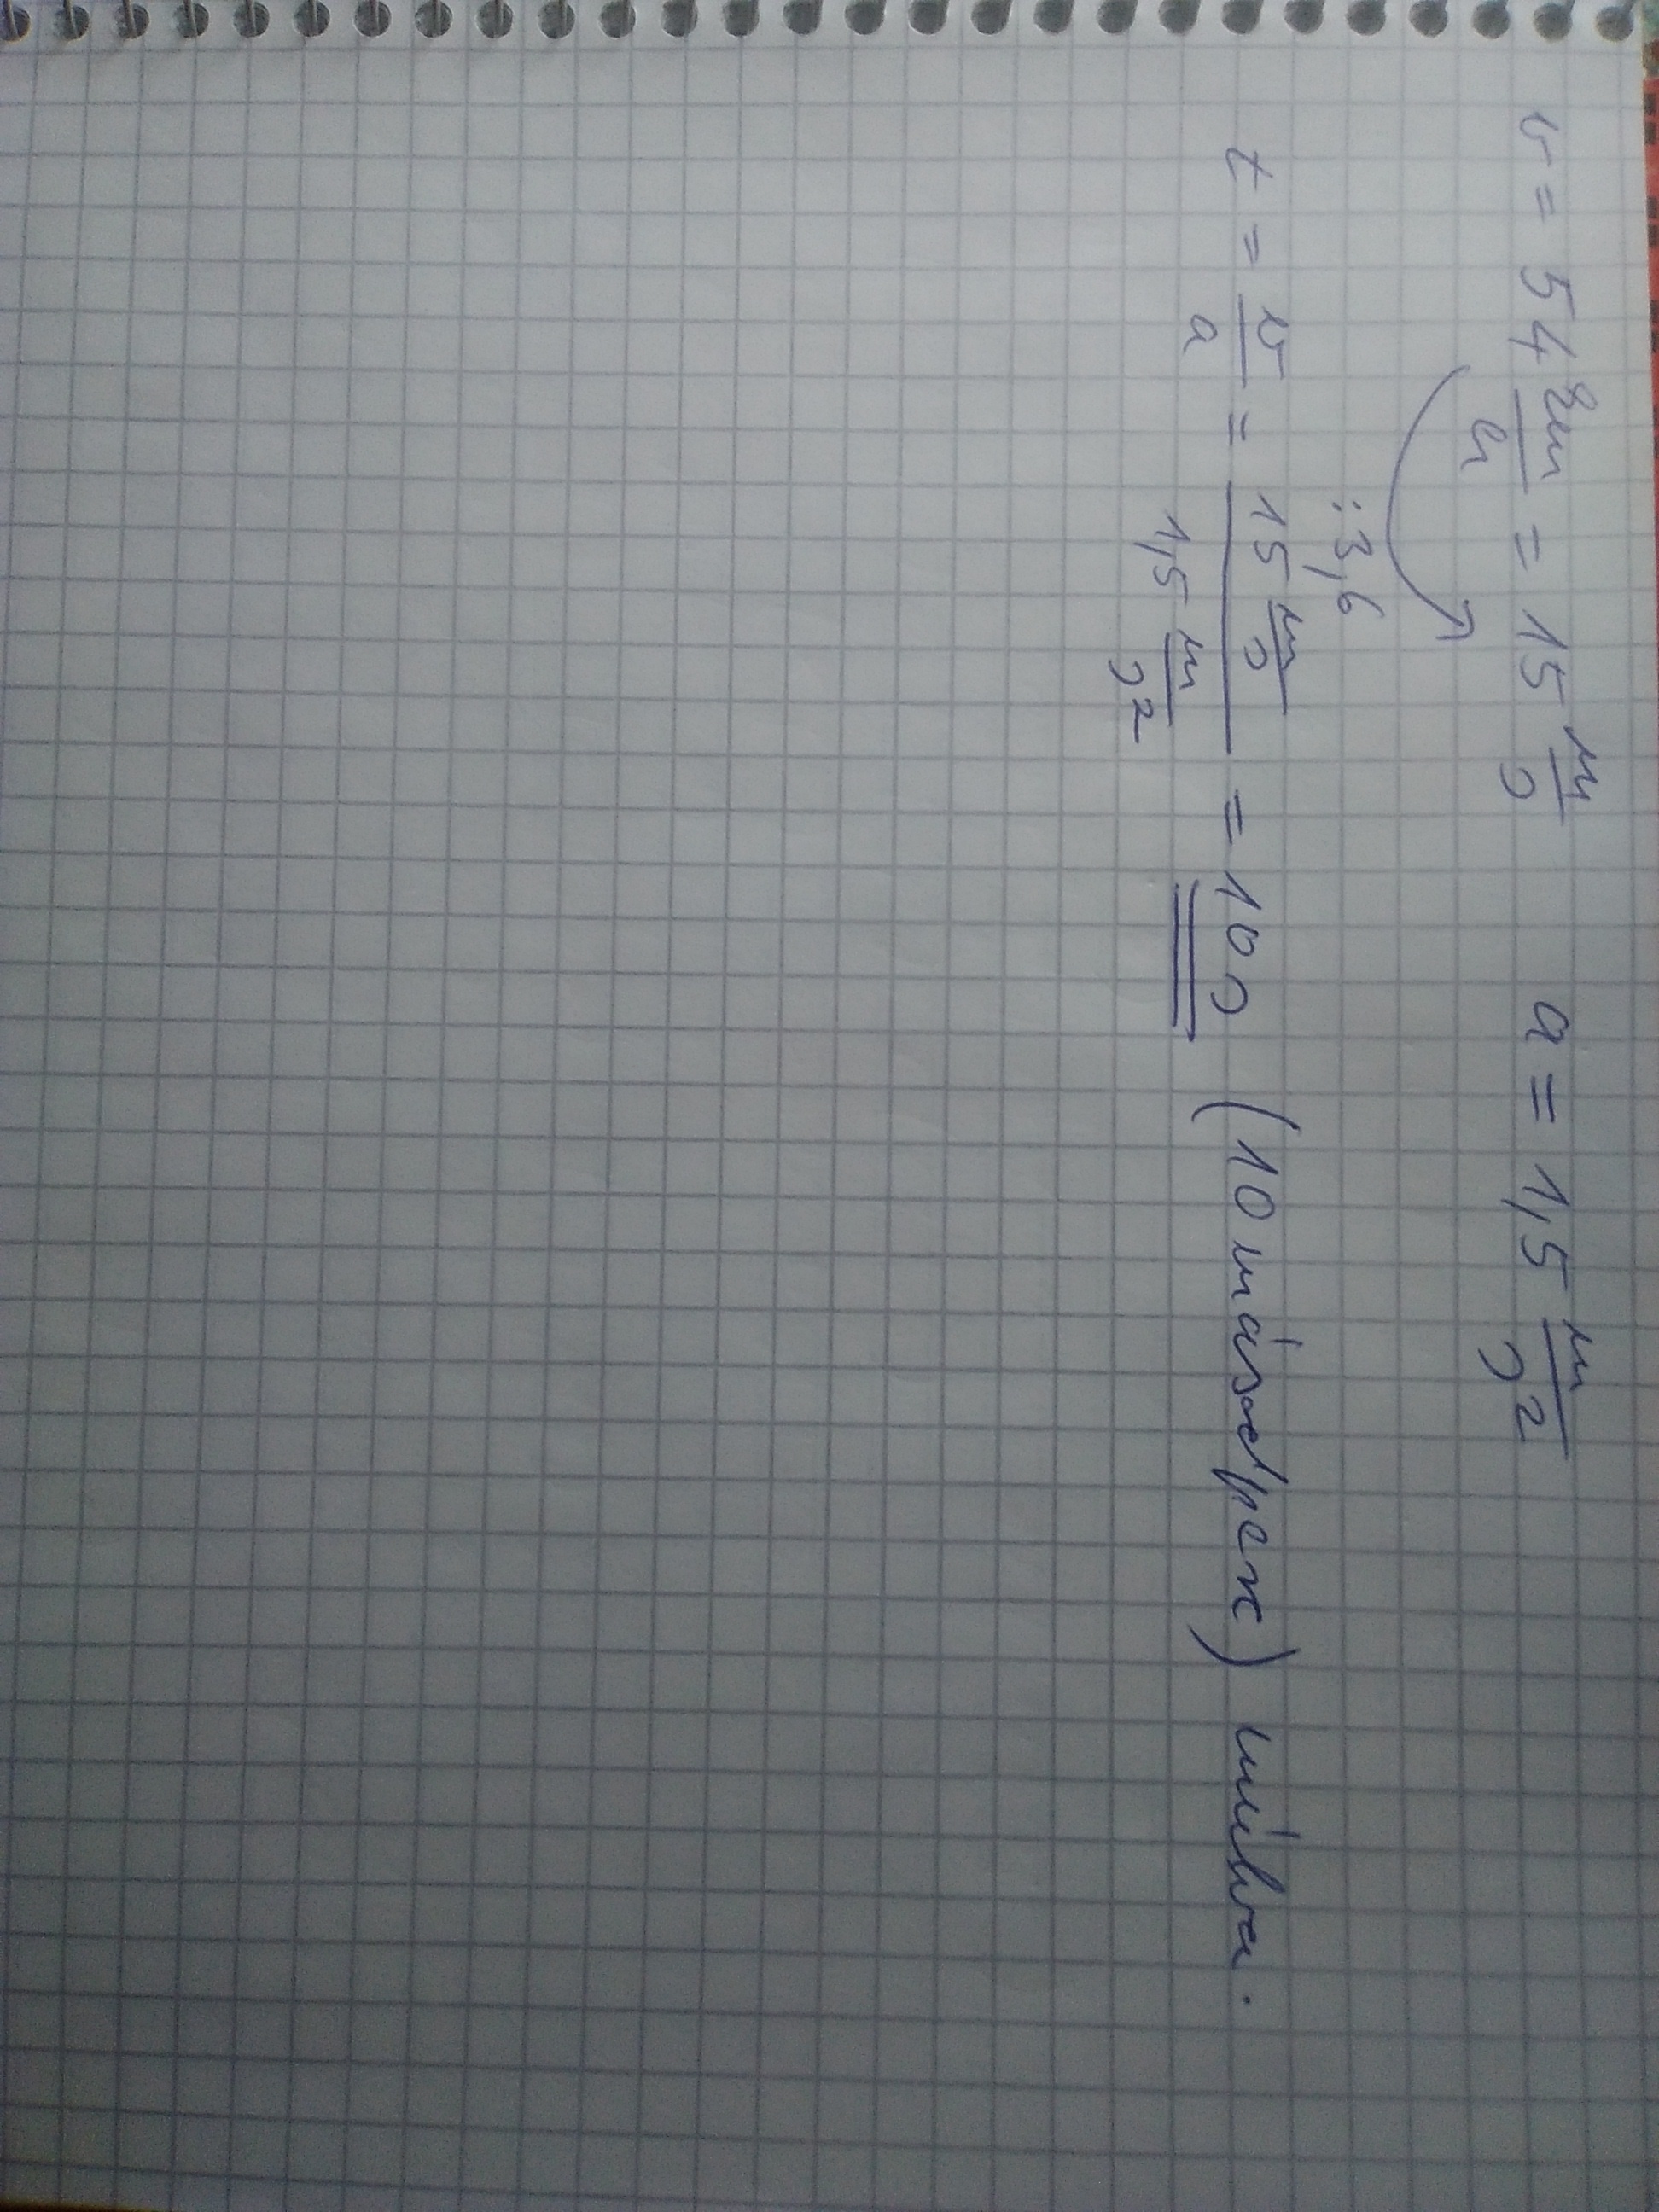 v = 54 km/h = 15 m/s a = 1,5 m/s²
:3,6
t = v/a = 15 m/s / 1,5 m/s² = 10 s (10 másodperc) múlva.